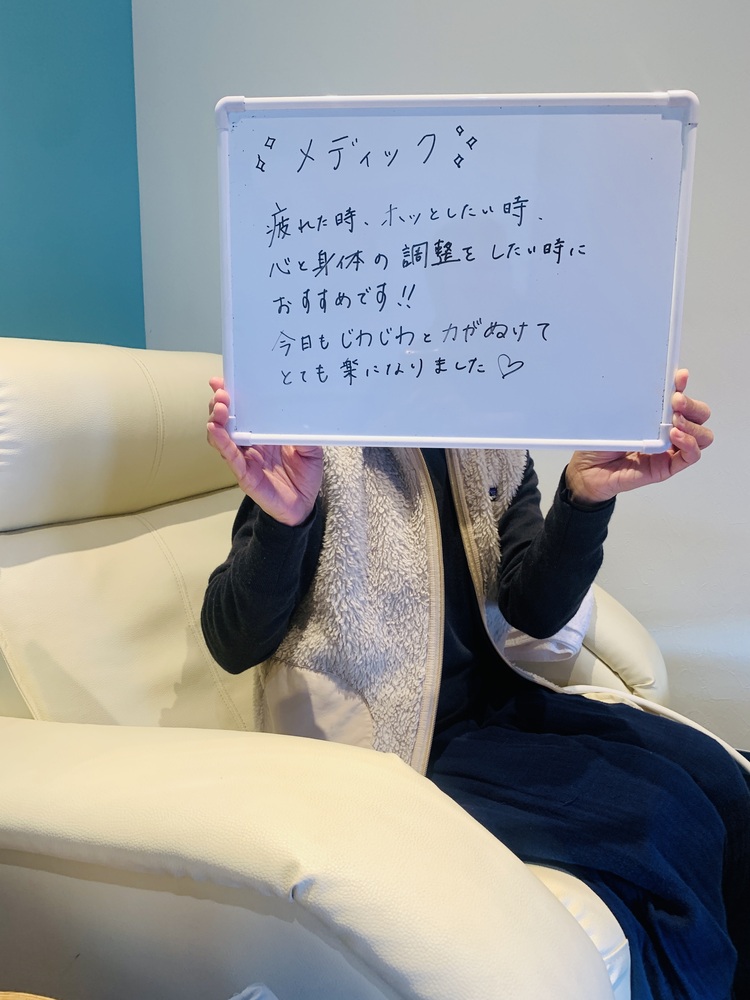 メディック
疲れた時、ホッとしたい時、
心と身体の調整をしたい時に
おすすめです!!
今日もじわじわと力がぬけて
とても楽になりました♡